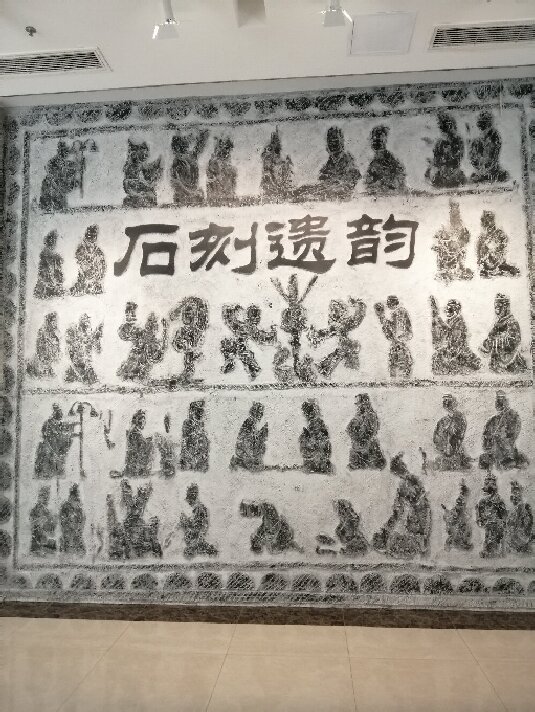 石刻遗韵